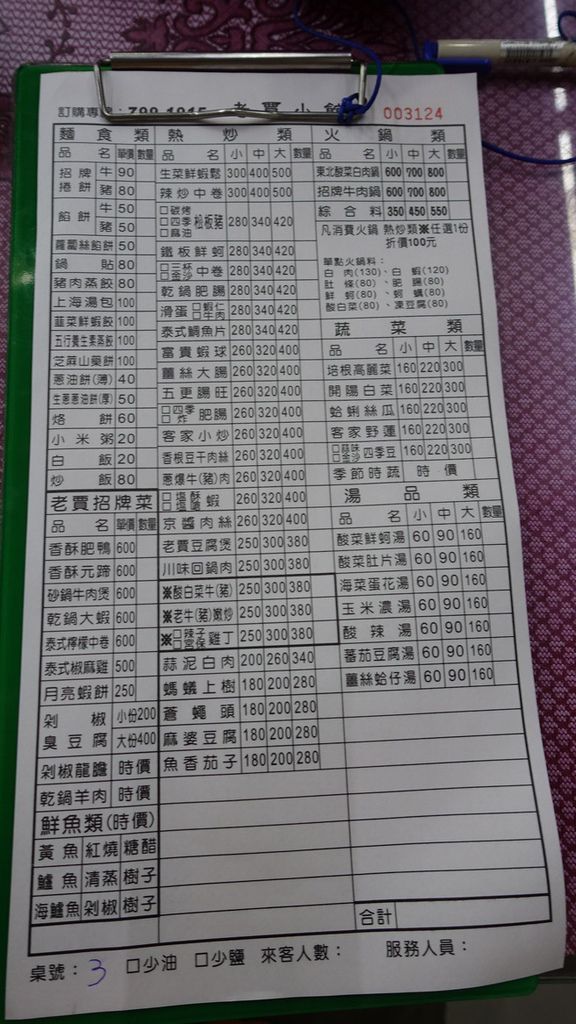 003124
麵食類
品名 單價 數量
招牌捲餅 牛 90
豬 80
餡餅 牛 50
豬 50
蘿蔔絲餡餅 50
鍋貼 80
豬肉蒸餃 80
上海湯包 100
韮菜鮮蝦餃 100
五行養生素蒸餃 100
芝麻山藥餅 100
蔥油餅(薄) 40
生蔥蔥油餅(厚) 50
烙餅 60
小米粥 20
白飯 20
炒飯 80
老賈招牌菜
品名 單價 數量
香酥肥鴨 600
香酥元蹄 600
砂鍋牛肉煲 600
乾鍋大蝦 600
泰式檸檬中卷 600
泰式椒麻雞 500
月亮蝦餅 250
剁椒臭豆腐 小份200
大份400
剁椒龍膽 時價
乾鍋羊肉 時價
鮮魚類(時價)
黃魚 紅燒 糖醋
鱸魚 清蒸 樹子
海鱸魚 剁椒 樹子
熱炒類
品名 小 中 大 數量
生菜鮮蝦鬆 300 400 500
辣炒中卷 300 400 500
□碳烤 □四季 □麻油 松板豬 280 340 420
鐵板鮮蚵 280 340 420
□三杯 □金沙 中卷 280 340 420
乾鍋肥腸 280 340 420
滑蛋 □蝦仁 □牛肉 280 340 420
泰式鯛魚片 280 340 420
富貴蝦球 260 320 400
薑絲大腸 260 320 400
五更腸旺 260 320 400
□四季 □炸 肥腸 260 320 400
客家小炒 260 320 400
香根豆干肉絲 260 320 400
蔥爆牛(豬)肉 260 320 400
蝦 260 320 400
京醬肉絲 260 320 400
老賈豆腐煲 250 300 380
川味回鍋肉 250 300 380
※酸白菜牛(豬) 250 300 380
※老牛(豬)嫩炒 250 300 380
※□辣子 □宮保 雞丁 250 300 380
蒜泥白肉 200 260 340
螞蟻上樹 180 200 280
蒼蠅頭 180 200 280
麻婆豆腐 180 200 280
魚香茄子 180 200 280
火鍋類
品名 小 中 大 數量
東北酸菜白肉鍋 600 700 800
招牌牛肉鍋 600 700 800
綜合料 350 450 550
凡消費火鍋 熱炒類※任選1份
折價100元
單點火鍋料：
白肉(130)、白蝦(120)
肚條(80)、肥腸(80)
鮮蚵(80)、蚵蠣(80)
酸白菜(80)、凍豆腐(80)
蔬菜類
品名 小 中 大 數量
培根高麗菜 160 220 300
開陽白菜 160 220 300
蛤蜊絲瓜 160 220 300
客家野蓮 160 220 300
□蒜味 □金沙 四季豆 160 220 300
季節時蔬 時價
湯品類
品名 小 中 大 數量
酸菜鮮蚵湯 60 90 160
酸菜肚片湯 60 90 160
海菜蛋花湯 60 90 160
玉米濃湯 60 90 160
酸辣湯 60 90 160
蕃茄豆腐湯 60 90 160
薑絲蛤仔湯 60 90 160
合計
桌號：3 □少油 □少鹽 來客人數： 服務人員：